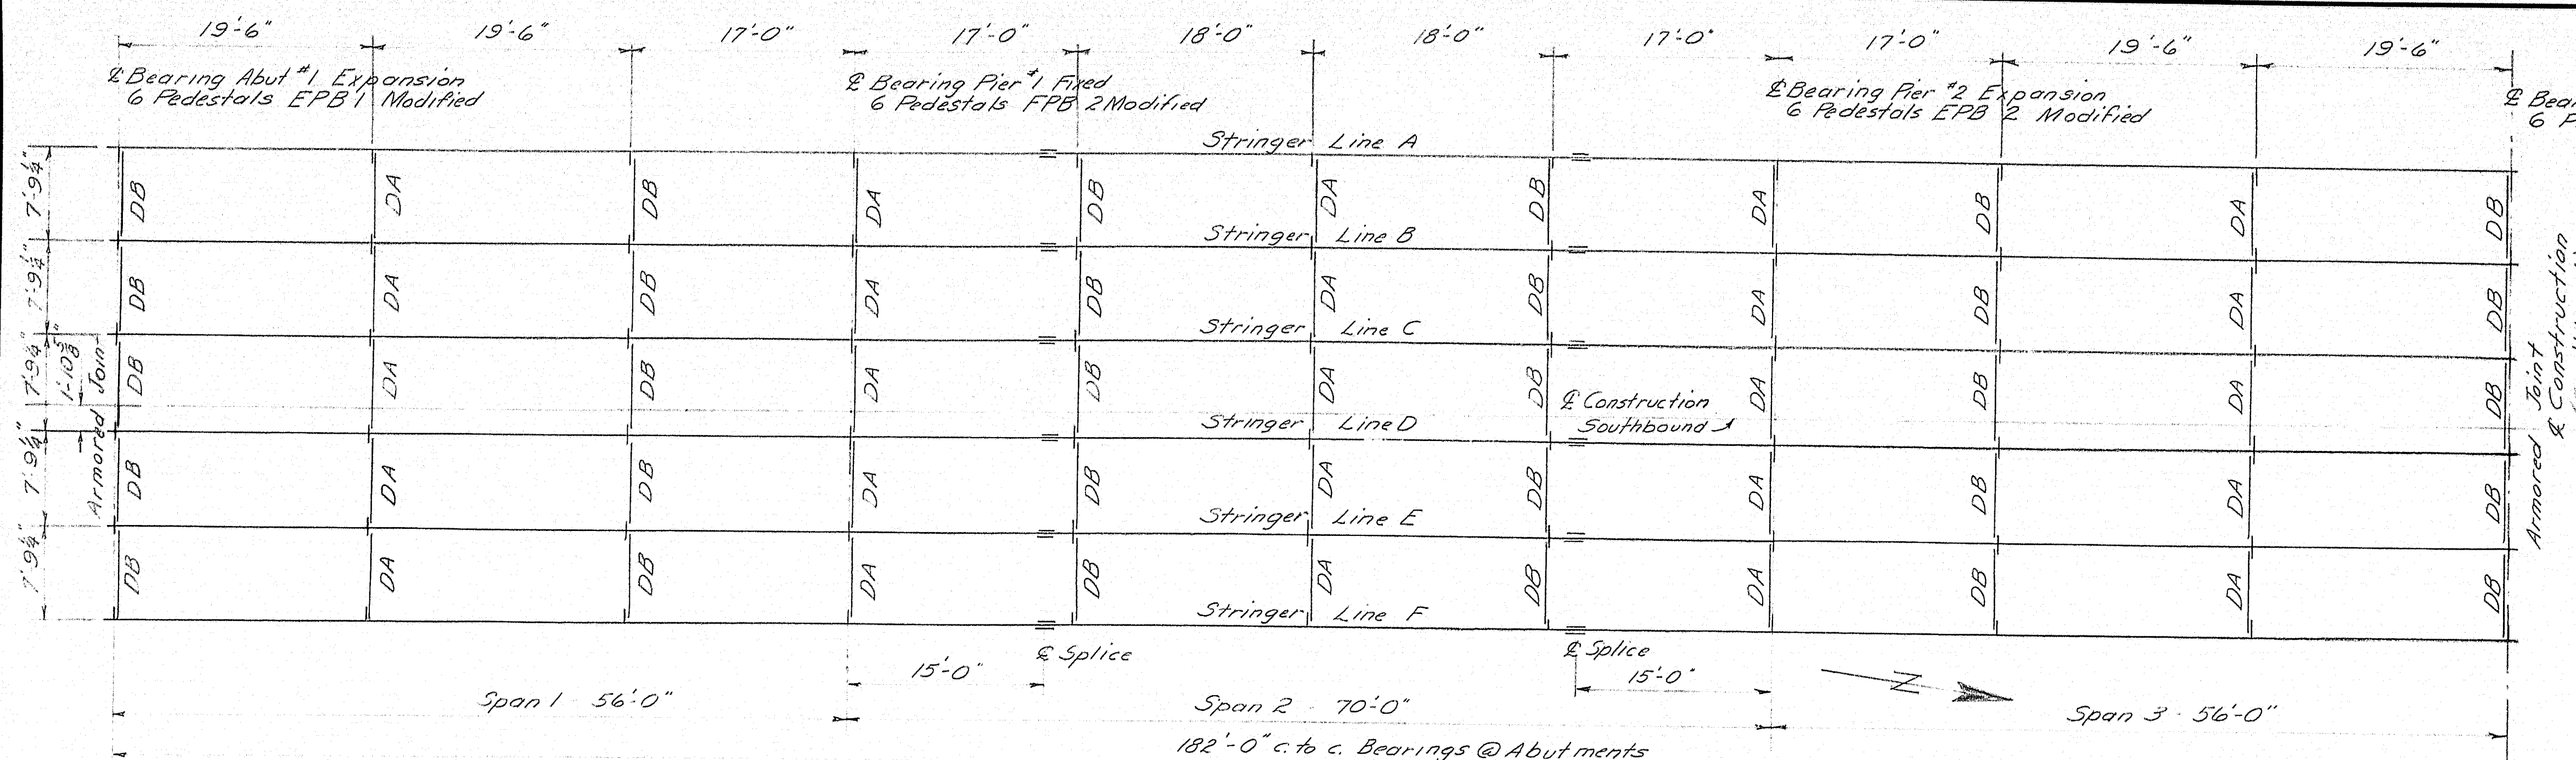 19'-6" 19'-6" 17'-0" 17'-0" 18'-0" 18'-0" 17'-0" 17'-0" 19'-6" 19'-6"
℄ Bearing Abut #1 Expansion
6 Pedestals EPB 1 Modified
℄ Bearing Pier #1 Fixed
6 Pedestals FPB 2 Modified
℄ Bearing Pier #2 Expansion
6 Pedestals EPB 2 Modified
℄ Bear
6 P
Stringer Line A
7'-9¼"
DB DA DB DA DB DA DB DA DB DA DB
Stringer Line B
7'-9¼"
DB DA DB DA DB DA DB DA DB DA DB
Stringer Line C
7'-9¼"
1'-10⅝"
DB DA DB DA DB DA DB DA DB DA DB
℄ Construction
Southbound
Stringer Line D
7'-9¼"
Armored Joint
DB DA DB DA DB DA DB DA DB DA DB
Stringer Line E
7'-9¼"
DB DA DB DA DB DA DB DA DB DA DB
Stringer Line F
Armored Joint
℄ Construction
℄ Splice
℄ Splice
15'-0"
15'-0"
N
Span 1 56'-0"
Span 2 - 70'-0"
Span 3 - 56'-0"
182'-0" c. to c. Bearings @ Abutments